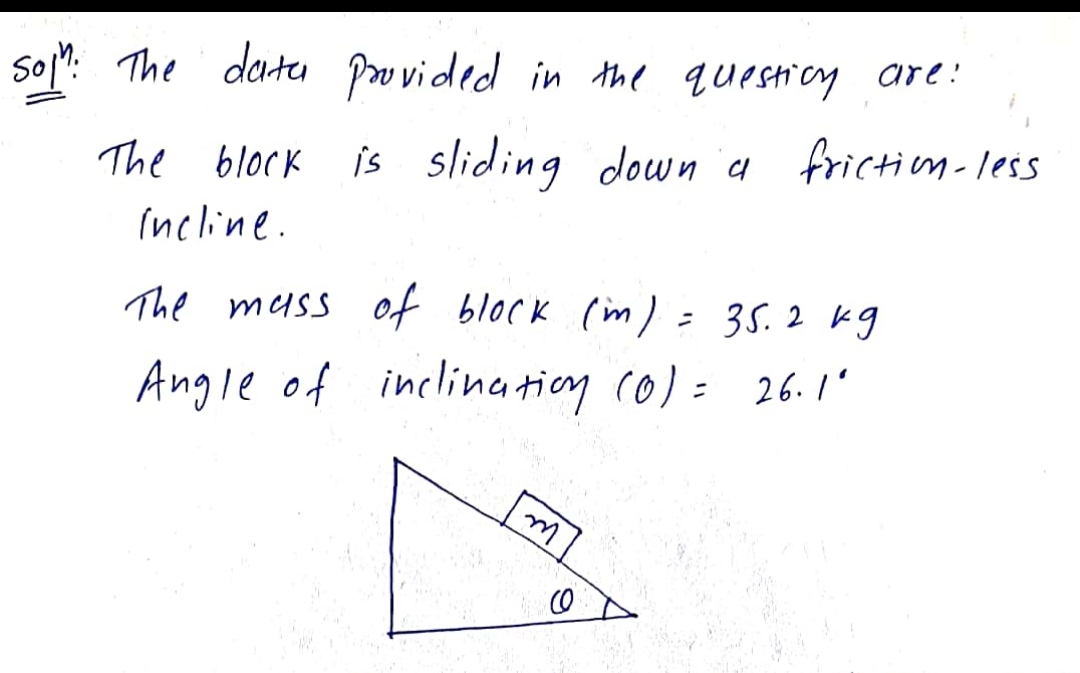 Solⁿ: The data provided in the question are:
The block is sliding down a friction-less
incline.
The mass of block (m) = 35.2 kg
Angle of inclination (θ) = 26.1°
m
θ